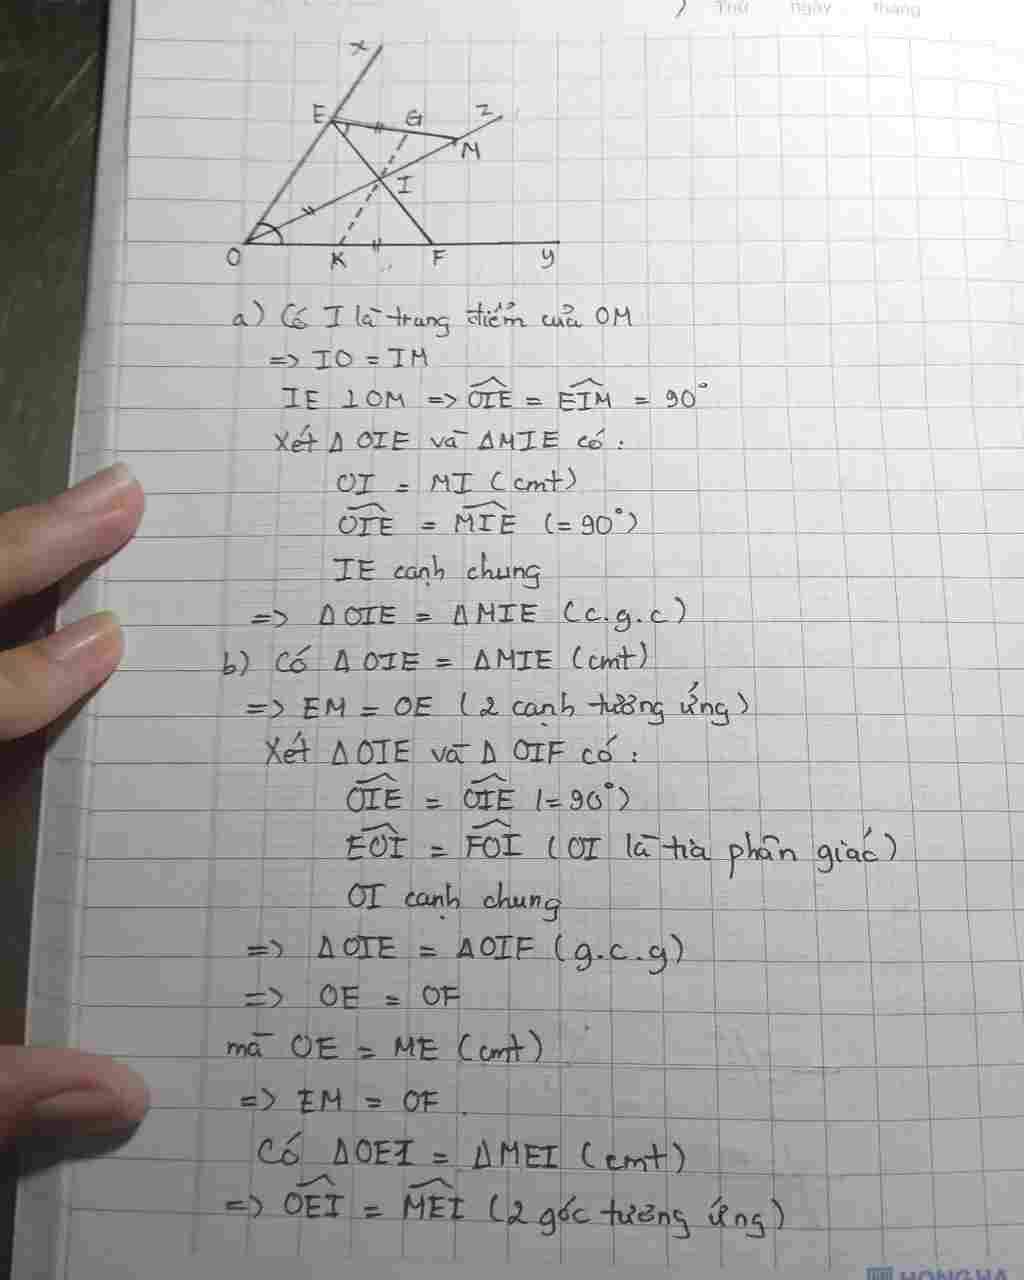 Thứ ngày tháng
x
E G z
M
I
O K F y
a) Có I là trung điểm của OM
=> IO = IM
IE ⊥ OM => \widehat{OIE} = \widehat{EIM} = 90°
Xét Δ OIE và Δ MIE có :
OI = MI (cmt)
\widehat{OIE} = \widehat{MIE} (= 90°)
IE cạnh chung
=> Δ OIE = Δ MIE (c.g.c)
b) Có Δ OIE = Δ MIE (cmt)
=> EM = OE (2 cạnh tương ứng)
Xét Δ OIE và Δ OIF có :
\widehat{OIE} = \widehat{OIE} (= 90°)
\widehat{EOI} = \widehat{FOI} (OI là tia phân giác)
OI cạnh chung
=> Δ OIE = Δ OIF (g.c.g)
=> OE = OF
mà OE = ME (cmt)
=> EM = OF .
Có Δ OEI = Δ MEI (cmt)
=> \widehat{OEI} = \widehat{MEI} (2 góc tương ứng)
HONG HA